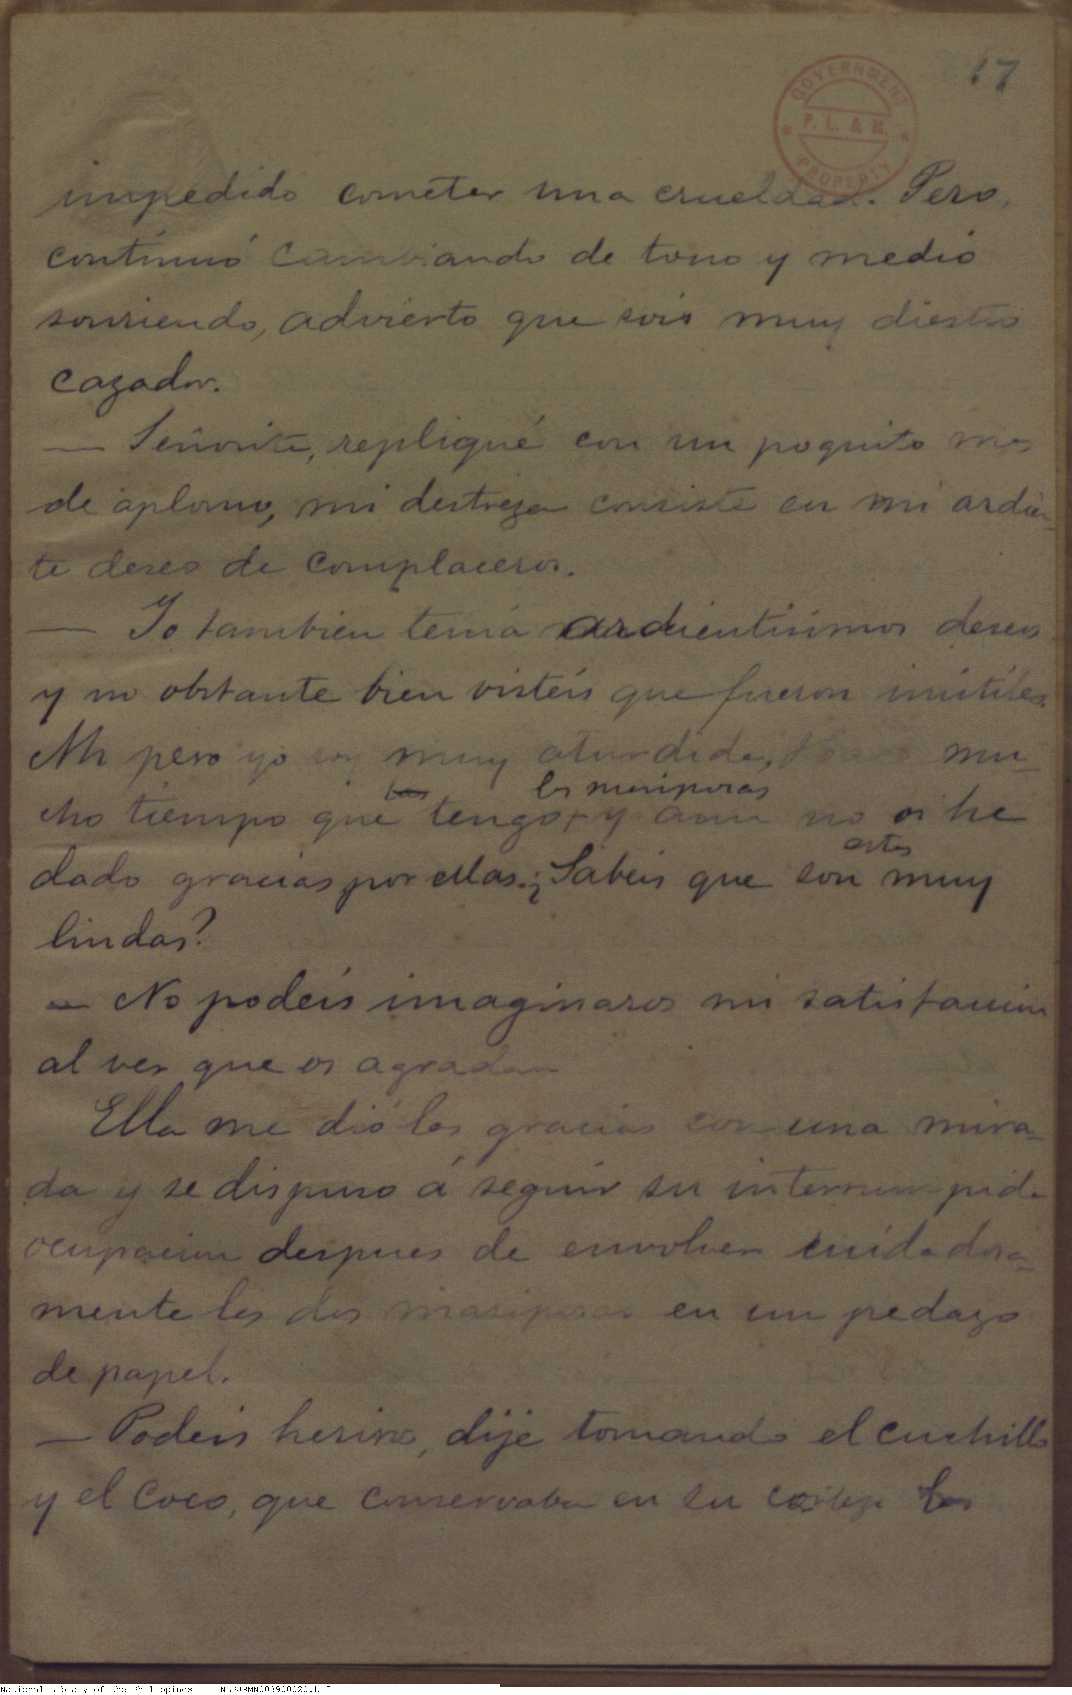 17
GOVERNMENT
P. L. & M.
PROPERTY
impedido cometer una crueldad. Pero,
continuó cambiando de tono y medio
sonriendo, advierto que sois muy diestro
cazador.
— Señorita, repliqué con un poquito mas
de aplomo, mi destreza consiste en mi ardien-
te deseo de complaceros.
— Yo tambien tenia ardientisimos deseos
y no obstante bien visteis que fueron inutiles.
Ah pero yo soy muy aturdida, mu-
las mariposas
cho tiempo que tengo y aun no os he
estas
dado gracias por ellas. ¿Sabeis que son muy
lindas?
— No podeis imaginaros mi satisfaccion
al ver que os agradan
Ella me dió las gracias con una mira-
da y se dispuso á seguir su interrumpida
ocupacion despues de envolver cuidadosa-
mente las dos mariposas en un pedazo
de papel.
— Podeis heriros, dije tomando el cuchillo
y el coco, que conservaba en su
National Library of the Philippines